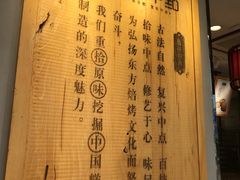 古法自然 复兴中点 百
拾味中点 修艺于心 味
为弘扬东方焙烤文化而努
奋斗。
我们重拾原味挖掘中国
制造的深度魅力。